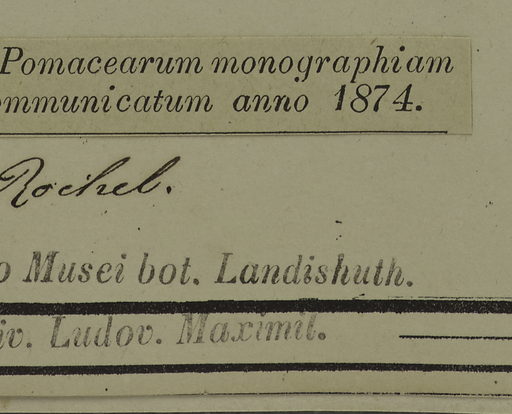 Pomacearum monographiam
ommunicatum anno 1874.
Rochel.
o Musei bot. Landishuth.
iv. Ludov. Maximil.